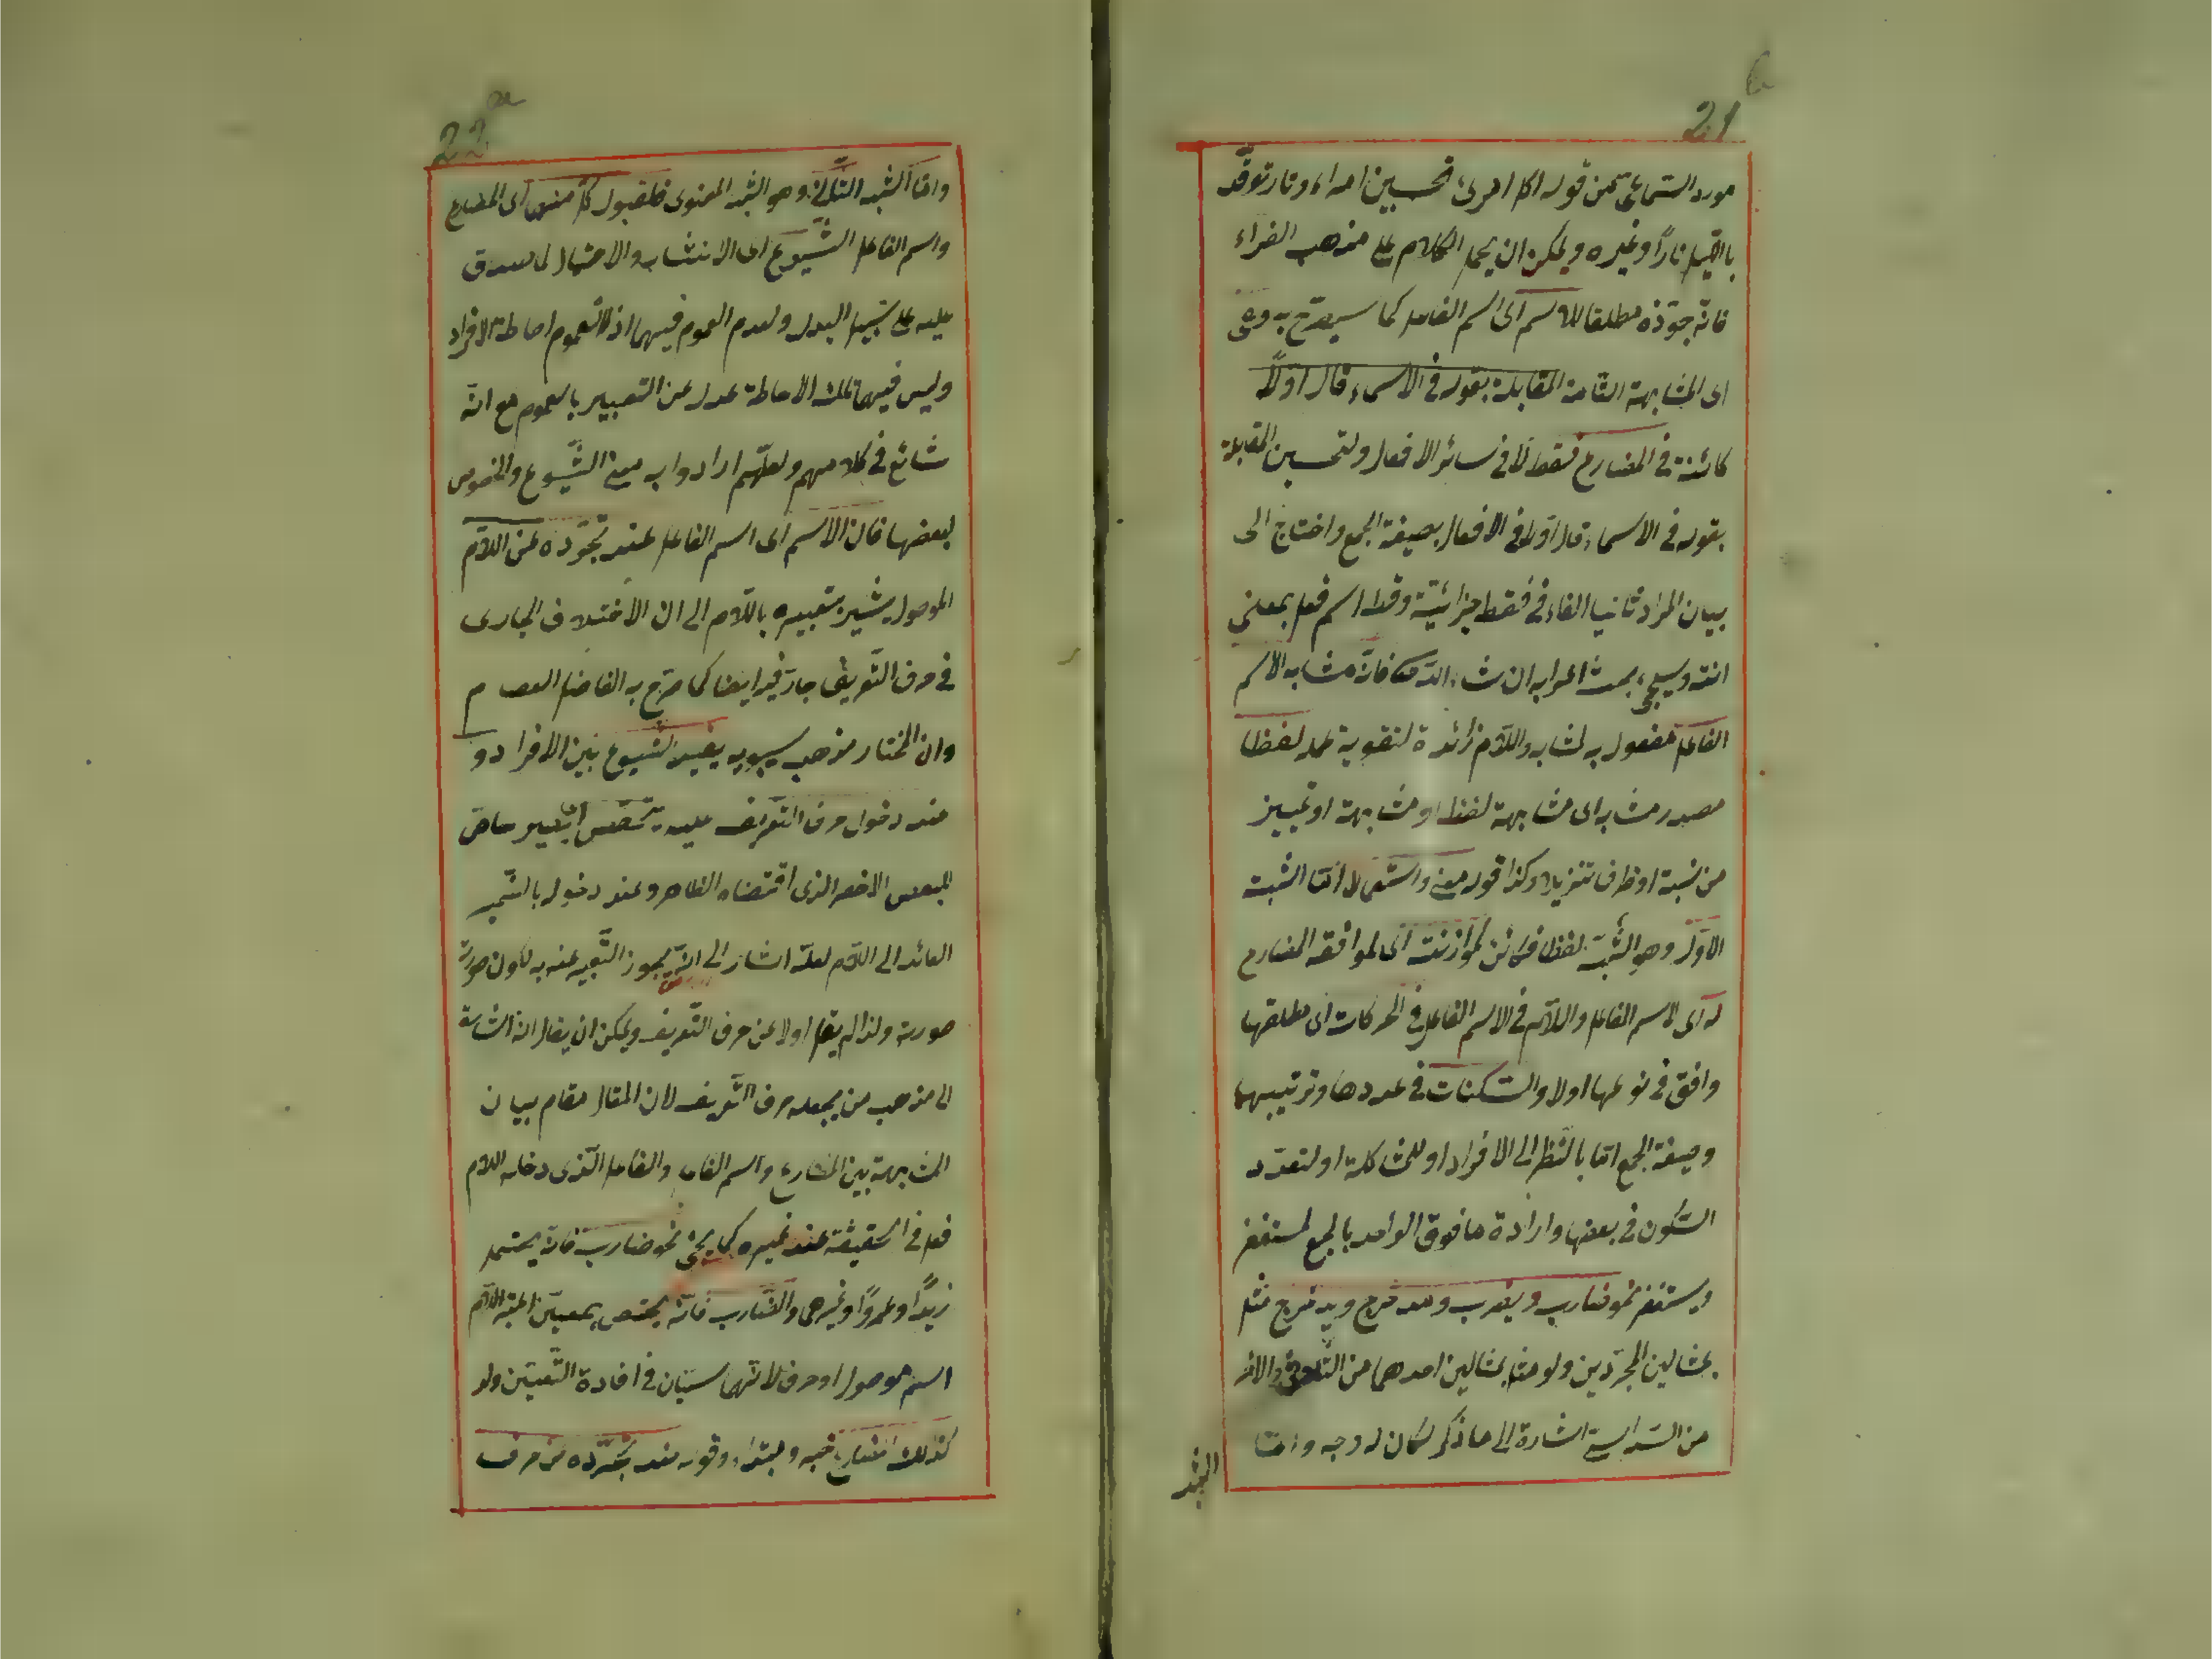 21 b
مورد السماعى من قوله اكل امرئ تحسبين امراء ونار توقّد
بالليل نارًا وغيره ويمكن ان يحمل الكلام على مذهب الفراء
فانّه جوّزه مطلقا للاسم اى اسم الفاعل كما سيصرّح به وهى
اى المشابهة التامة المقابلة بقوله فى الاسماء قال اوّلًا
كائنة فى المضارع فقط لا فى سائر الافعال ولتحسين المقابلة
بقوله فى الاسماء قال اوّلا فى الافعال بصيغة الجمع واحتاج الى
بيان المراد ثانيا الفاء فى فقط جزائيّة وقط اسم فعل بمعنى
انته وسيجىء بحث اعرابه ان شاء الله فانّه مشابه لاسم
الفاعل مفعول به لمشابه واللام زائدة لتقوية عمله لفظا
مصدر مشابه اى مشابهة لفظ او مشابهة او تمييز
من نسبة او ظرف تنزيلا وكذا قوله معنى واستعمالا امّا الشبه
الاوّل وهو الشّبه لفظا فكائن لموازنته اى لموافقة المضارع
له اى لاسم الفاعل واللام فى الاسم الفاعل فى الحركات اى مطلقها
وافق فى نوعها اولا والسّكنات فى عددها وترتيبها
وصيغة الجمع امّا بالنّظر الى الافراد او للمشاكلة او لتعدّد
السّكون فى بعضها وارادة ما فوق الواحد بالجمع لمستغفر
ويستغفر نحو ضارب ويضرب ومدحرج ويدحرج مثل
بمثالين المجرّدين ولو مثل بمثالين احدهما من الثّلاثى والاخر
من السّداسى اشارة الى ما ذكر لكان له وجه وامّا
الشبه
22 a
وامّا الشبه الثّانى وهو الشّبه المعنوى فلقبول كلّ منهما اى المضارع
واسم الفاعل الشّيوع اى الانتشار والاحتمال لما صدق
عليه على سبيل البدل ولعدم العموم فيهما اذ العموم احاطة الافراد
وليس فيهما تلك الاحاطة عدل عن التعبير بالعموم مع انّه
شائع فى كلامهم ولعلّهم ارادوا به معنى الشّيوع والخصوص
لبعضها فان الاسم اى اسم الفاعل عند تجرّده عن اللام
الموصول يشير بتعبيره باللّام الى ان الاختلاف الجارى
فى حرف التّعريف جار فيه ايضا كما صرّح به الفاضل العصام
وان المختار مذهب سيبويه يفيد الشيوع بين الافراد و
عند دخول حرف التّعريف عليه يتخصّص
للبعض الاخص الذى اقتضاه الظاهر وعند دخوله بالضّمير
العائد الى اللام لعلّه اشار الى انّه يجوز التّعبير عنه به لكون صورته
صورته ولذا لم يقل اولا عن حرف التّعريف ويمكن ان يقال انه اشارة
الى مذهب من يجعله حرف التّعريف لان المقال مقام بيان
المشابهة بين المضارع واسم الفاعل والفاعل الّذى دخله اللام
فعل فى الحقيقة عند غيره كما يجئ نحو ضارب فانّه يحتمل
زيدًا وعمروًا وغيرهما والضّارب فانّه يختص بمعيّن
اسم موصول او حرف لانّهما سيّان فى افادة التّعيين ولو
كذلك المضارع خبر ومبتداء وقوله عند تجرّده من حرف